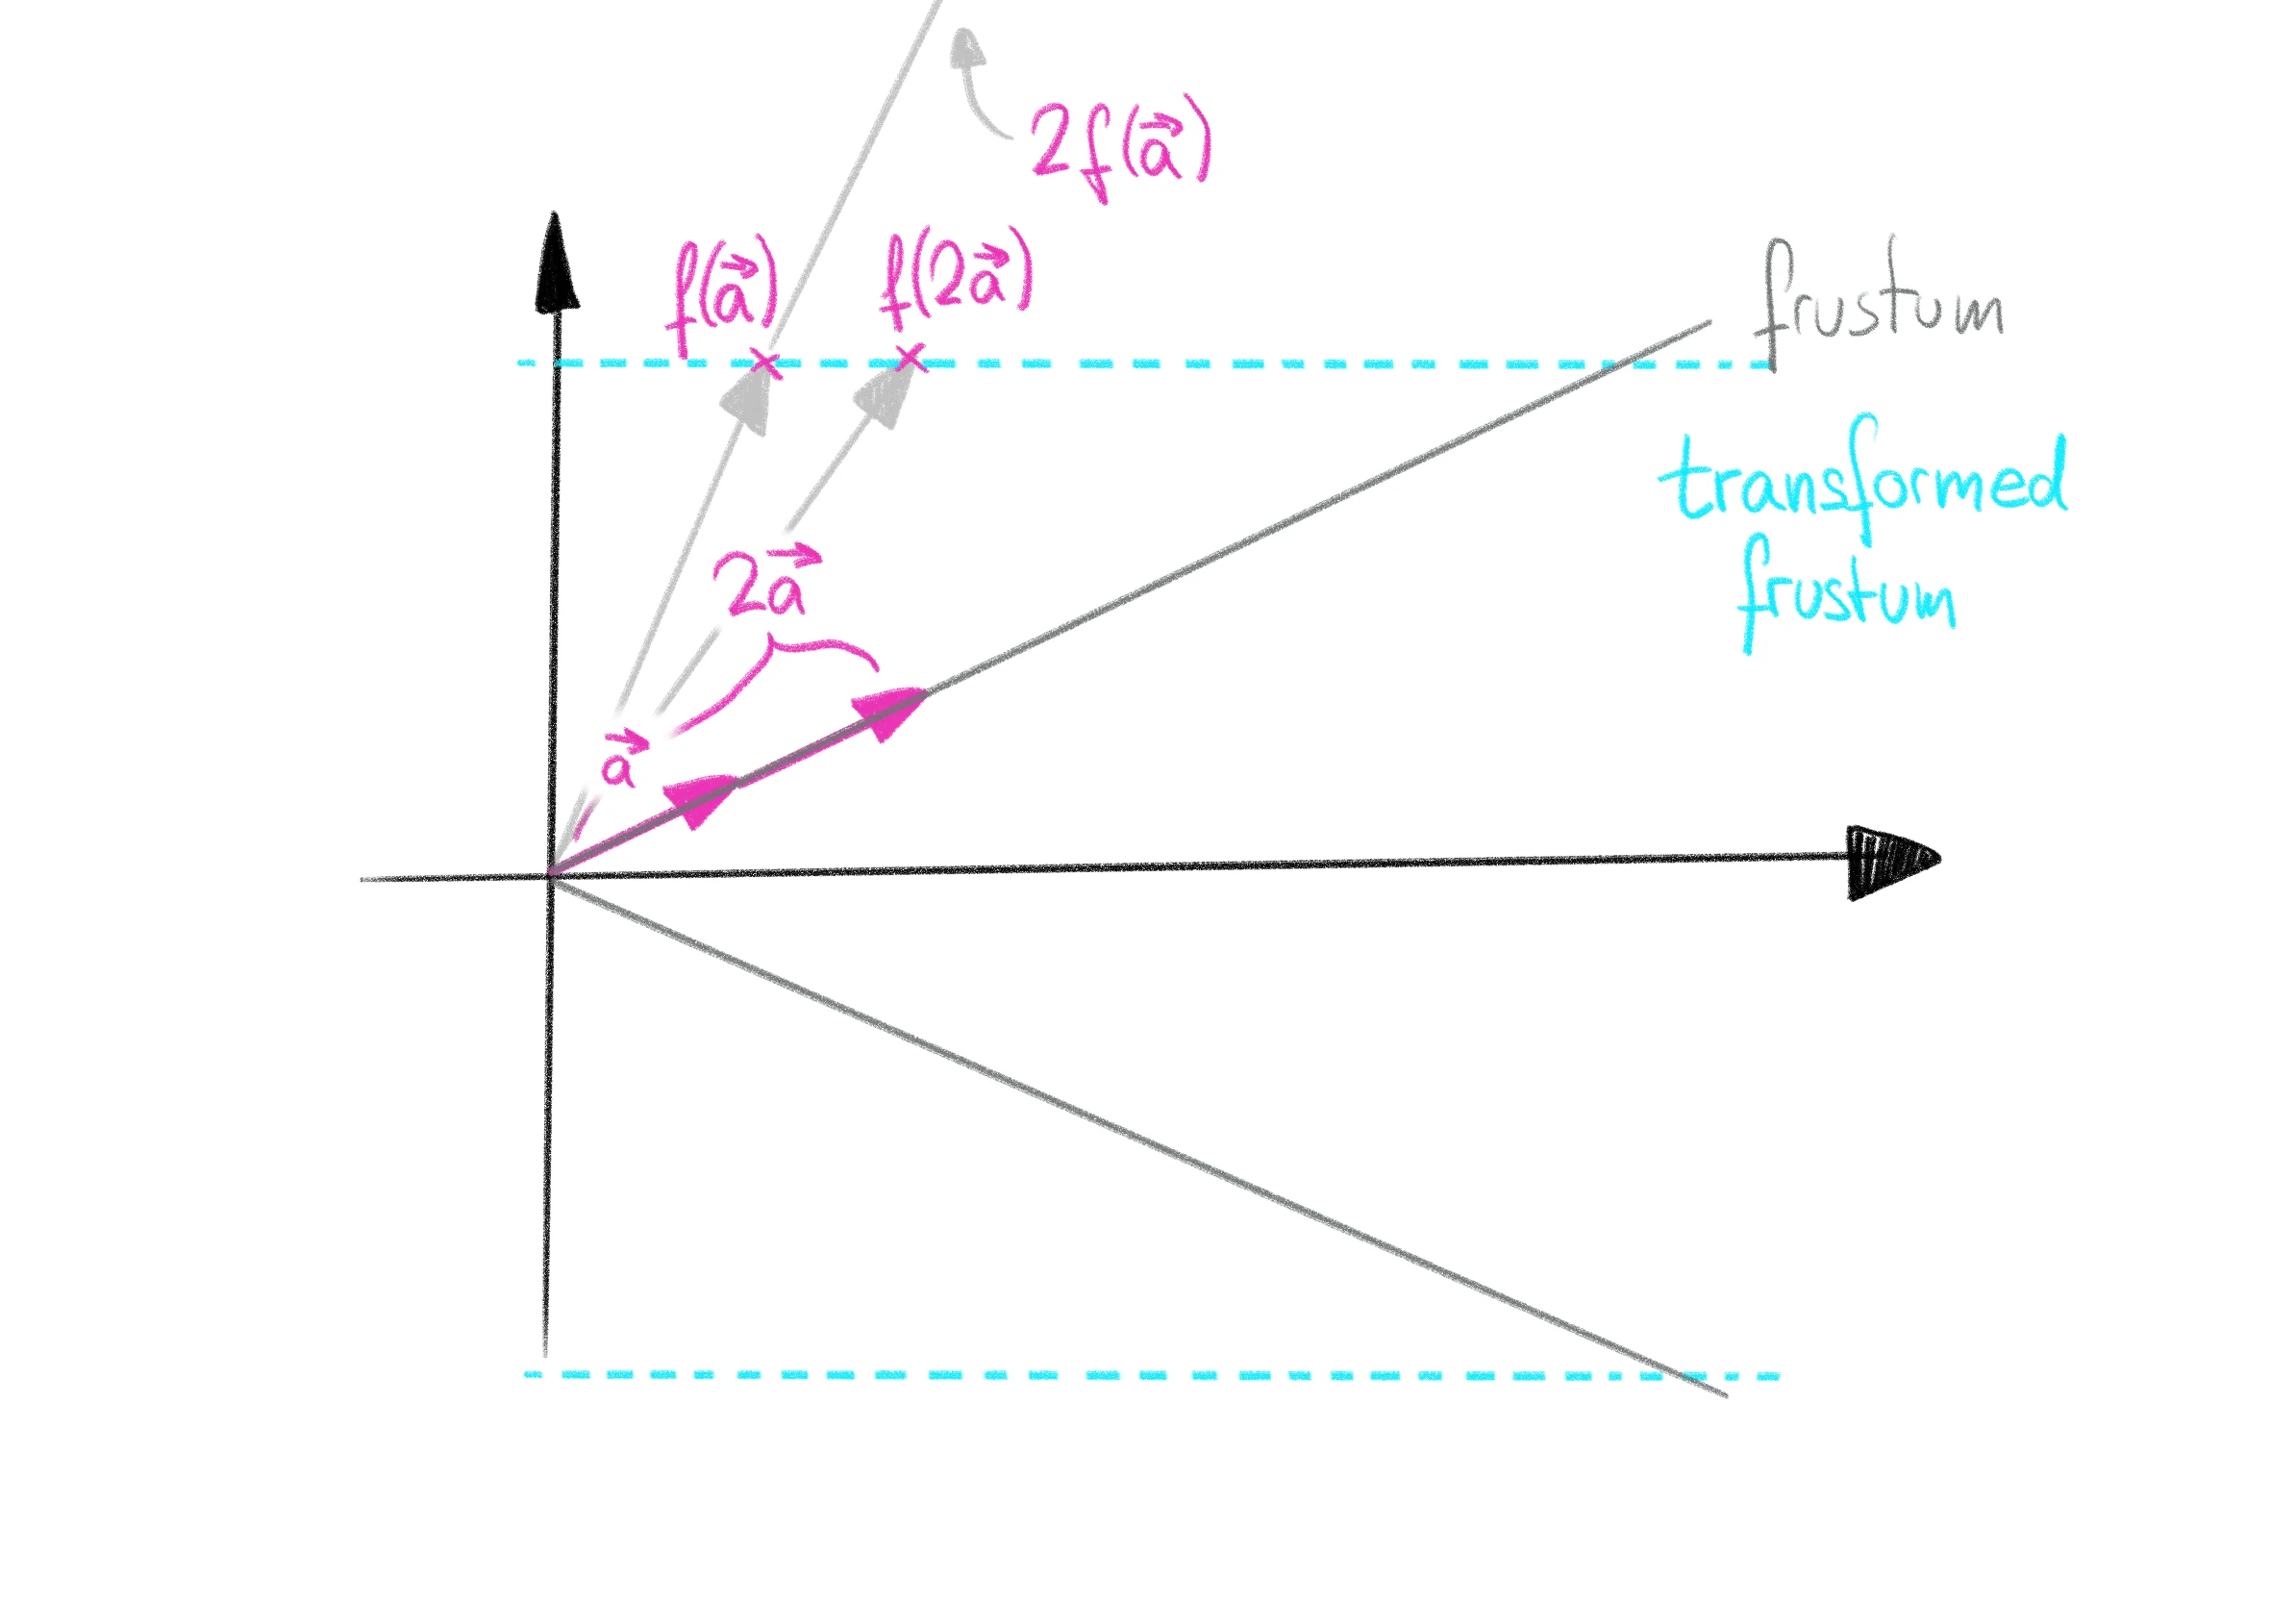 2f(a⃗)
f(a⃗)
f(2a⃗)
frustum
transformed
frustum
2a⃗
a⃗